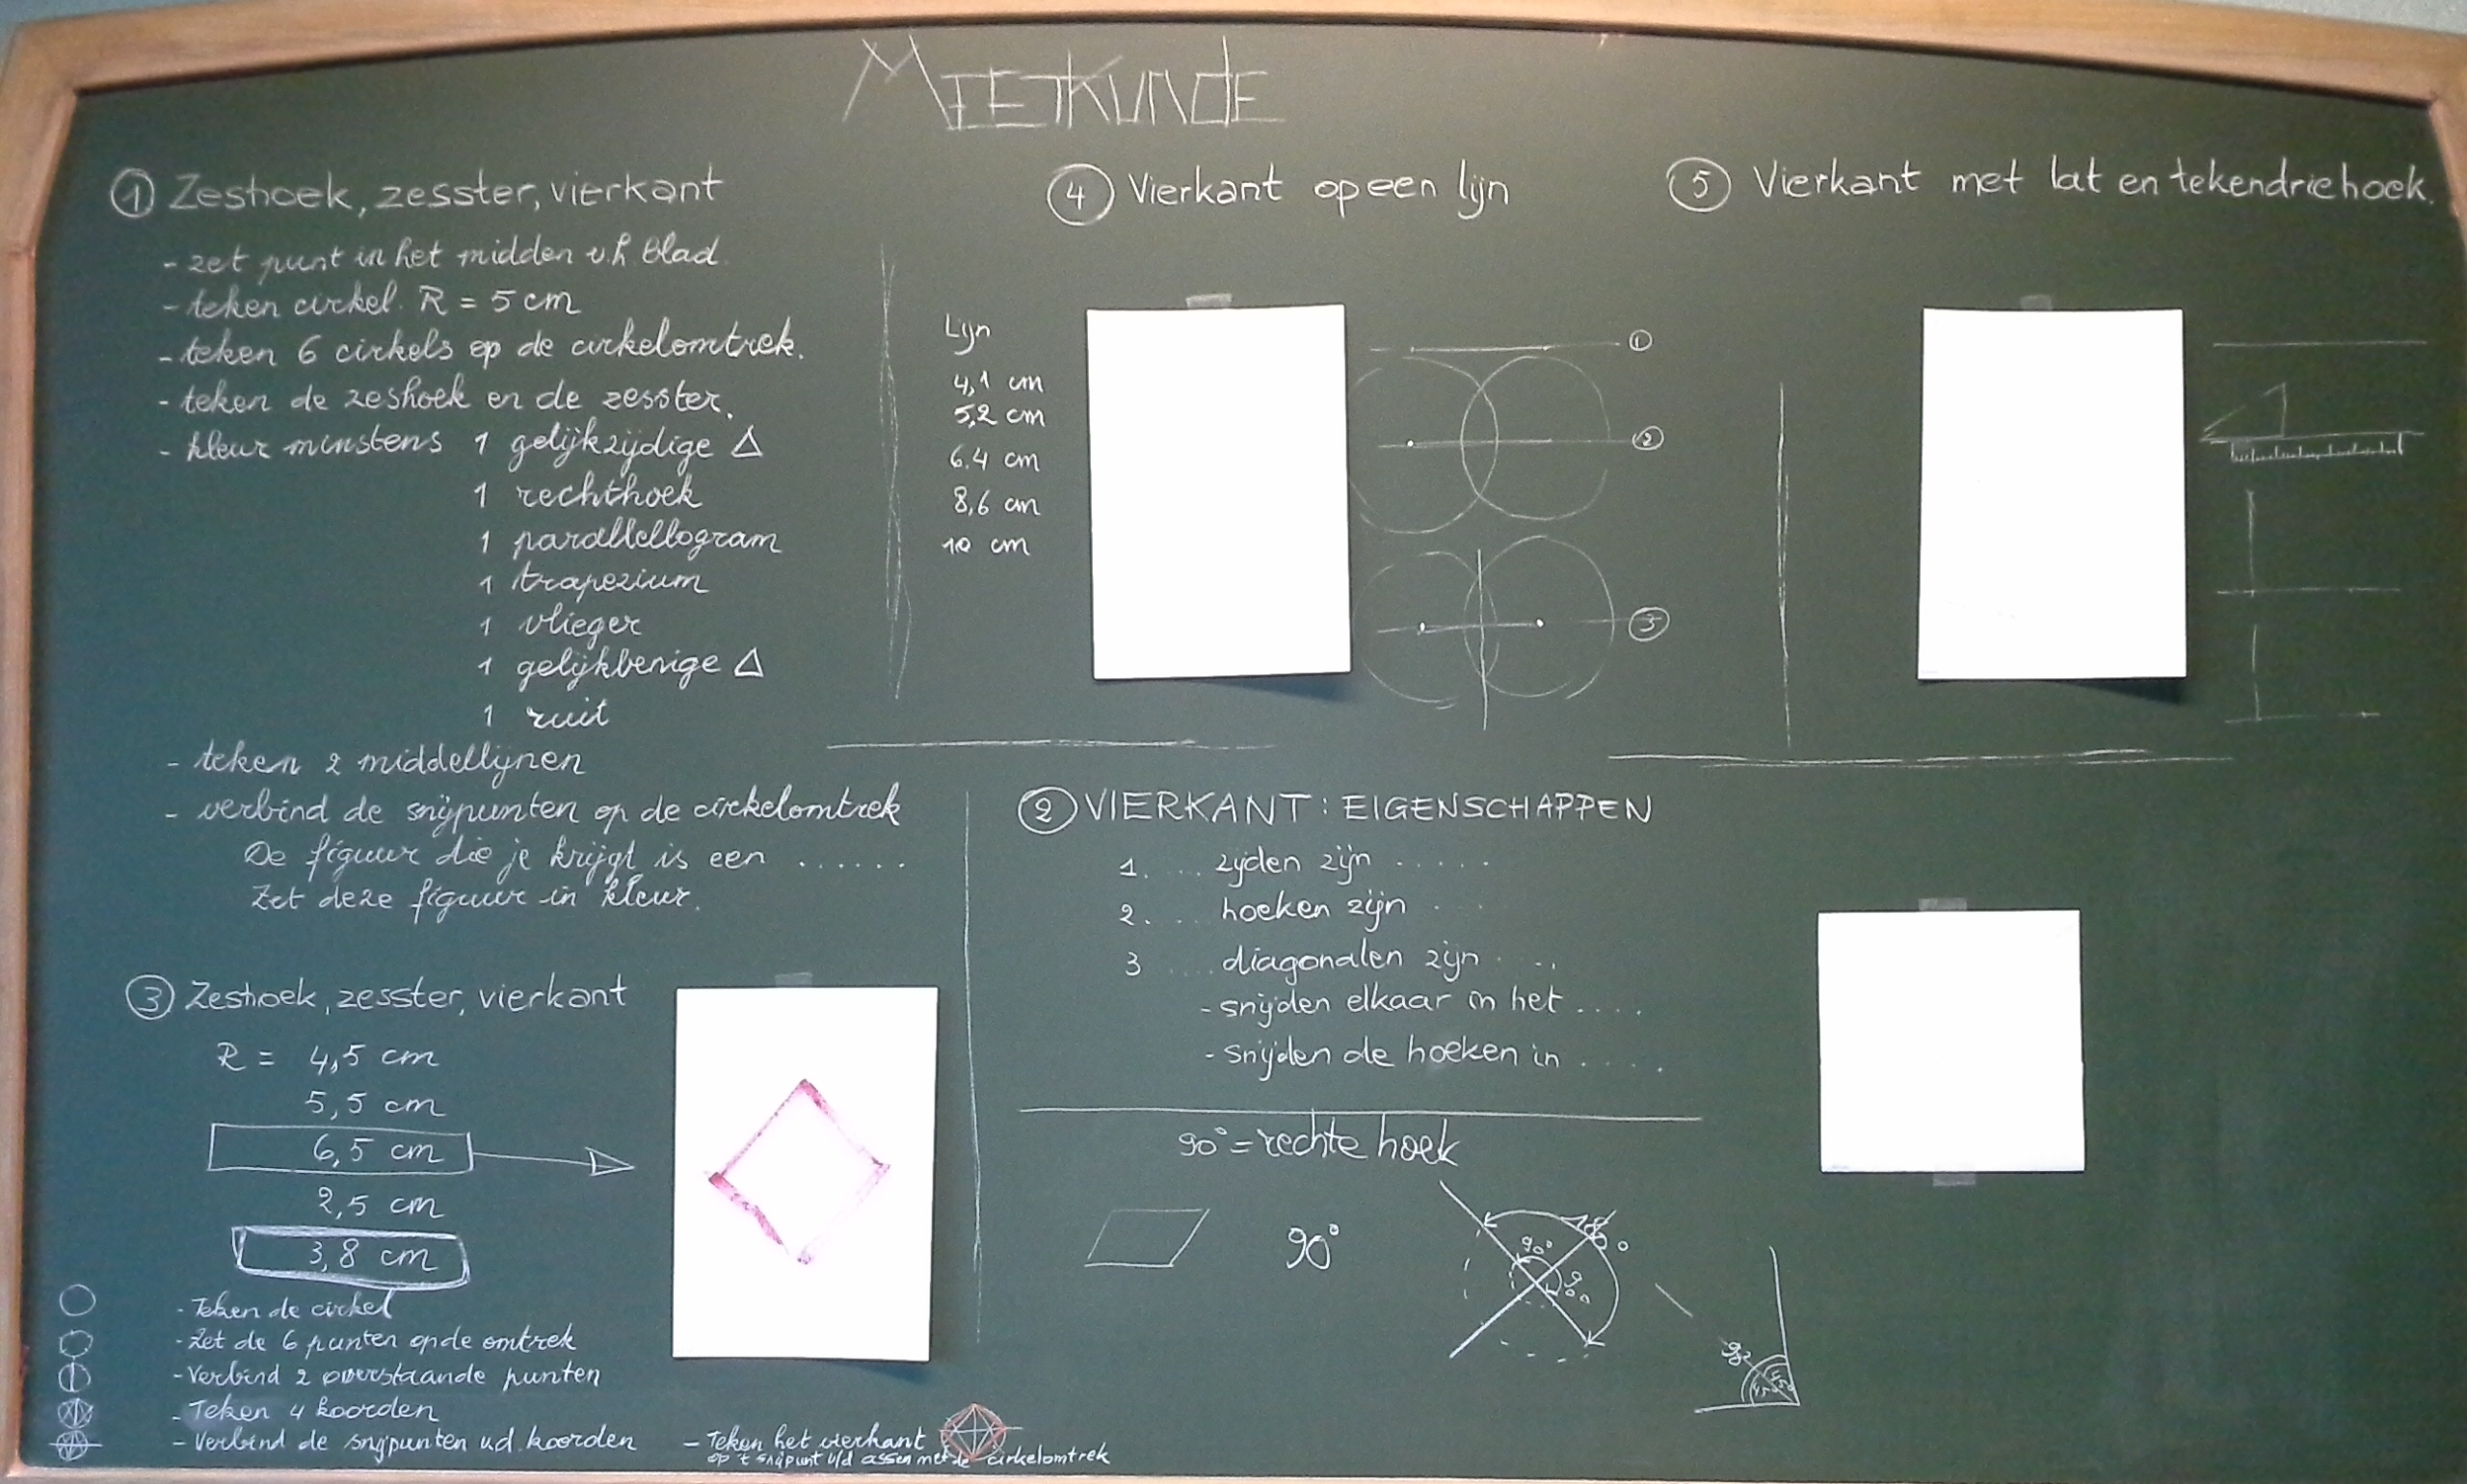 MEETKUNDE
① Zeshoek, zesster, vierkant
- zet punt in het midden v.h. blad.
- teken cirkel. R = 5 cm
- teken 6 cirkels op de cirkelomtrek.
- teken de zeshoek en de zesster.
- kleur minstens 1 gelijkzijdige △
1 rechthoek
1 parallellogram
1 trapezium
1 vlieger
1 gelijkbenige △
1 ruit
- teken 2 middellijnen
- verbind de snijpunten op de cirkelomtrek
De figuur die je krijgt is een ......
Zet deze figuur in kleur.
③ Zeshoek, zesster, vierkant
R = 4,5 cm
5,5 cm
6,5 cm
2,5 cm
3,8 cm
- Teken de cirkel
- Zet de 6 punten op de omtrek
- Verbind 2 overstaande punten
- Teken 4 koorden
- Verbind de snijpunten v.d. koorden
- Teken het vierkant
op 't snijpunt v/d assen met de cirkelomtrek
④ Vierkant op een lijn
Lijn
4,1 cm
5,2 cm
6.4 cm
8,6 cm
10 cm
①
②
③
⑤ Vierkant met lat en tekendriehoek.
② VIERKANT: EIGENSCHAPPEN
1. ... zijden zijn .....
2. .. hoeken zijn ...
3 .... diagonalen zijn ....
- snijden elkaar in het ....
- snijden de hoeken in ....
90° = rechte hoek
90°
90°